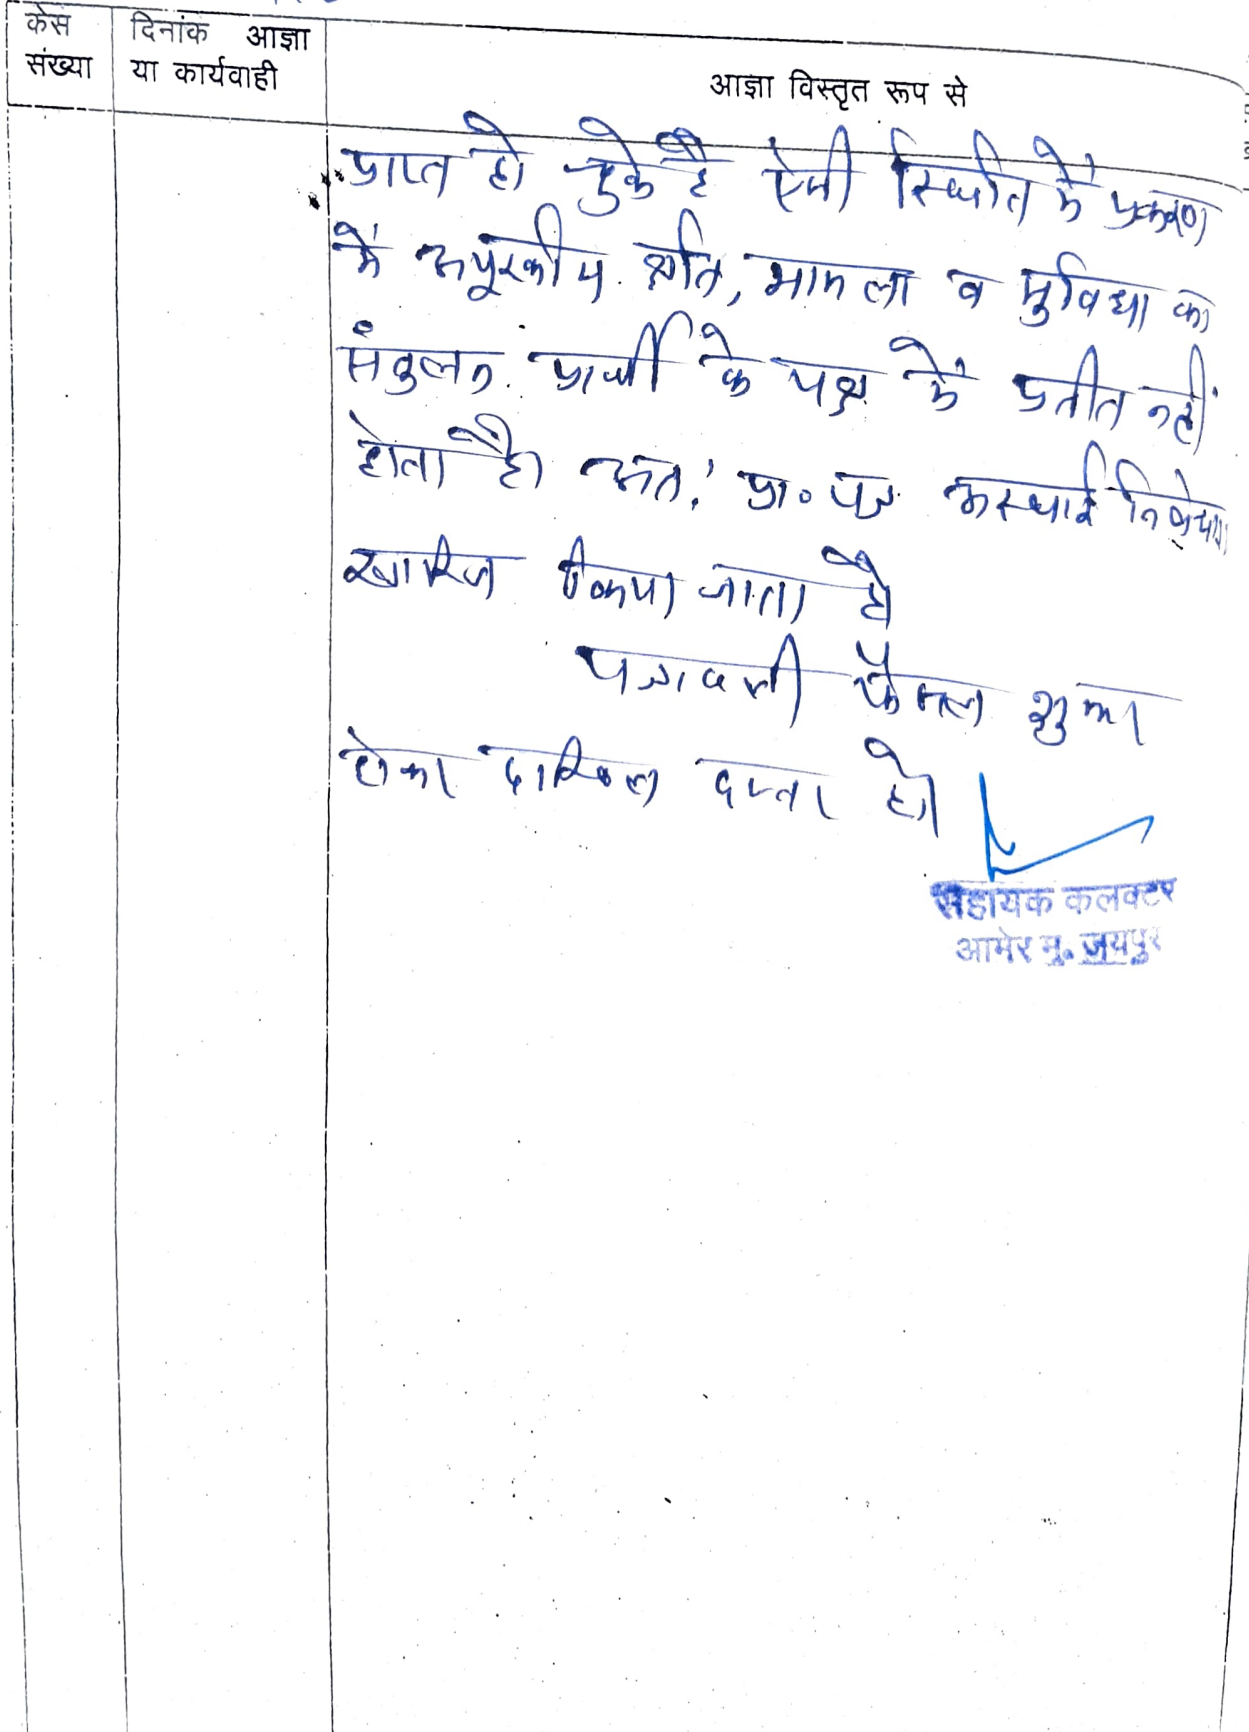 केस संख्या
दिनांक आज्ञा या कार्यवाही
आज्ञा विस्तृत रूप से
प्राप्त हो चुके है ऐसी स्थिति में प्रकरण
में अपूरणीय क्षति, मामला व सुविधा का
संतुलन प्रार्थी के पक्ष में प्रतीत नहीं
होता है। अतः प्रा॰ पत्र अस्थाई निषेधाज्ञा
खारिज किया जाता है।
पत्रावली फैसल शुमार
होकर दाखिल दफ्तर हो।
सहायक कलक्टर
आमेर मु. जयपुर